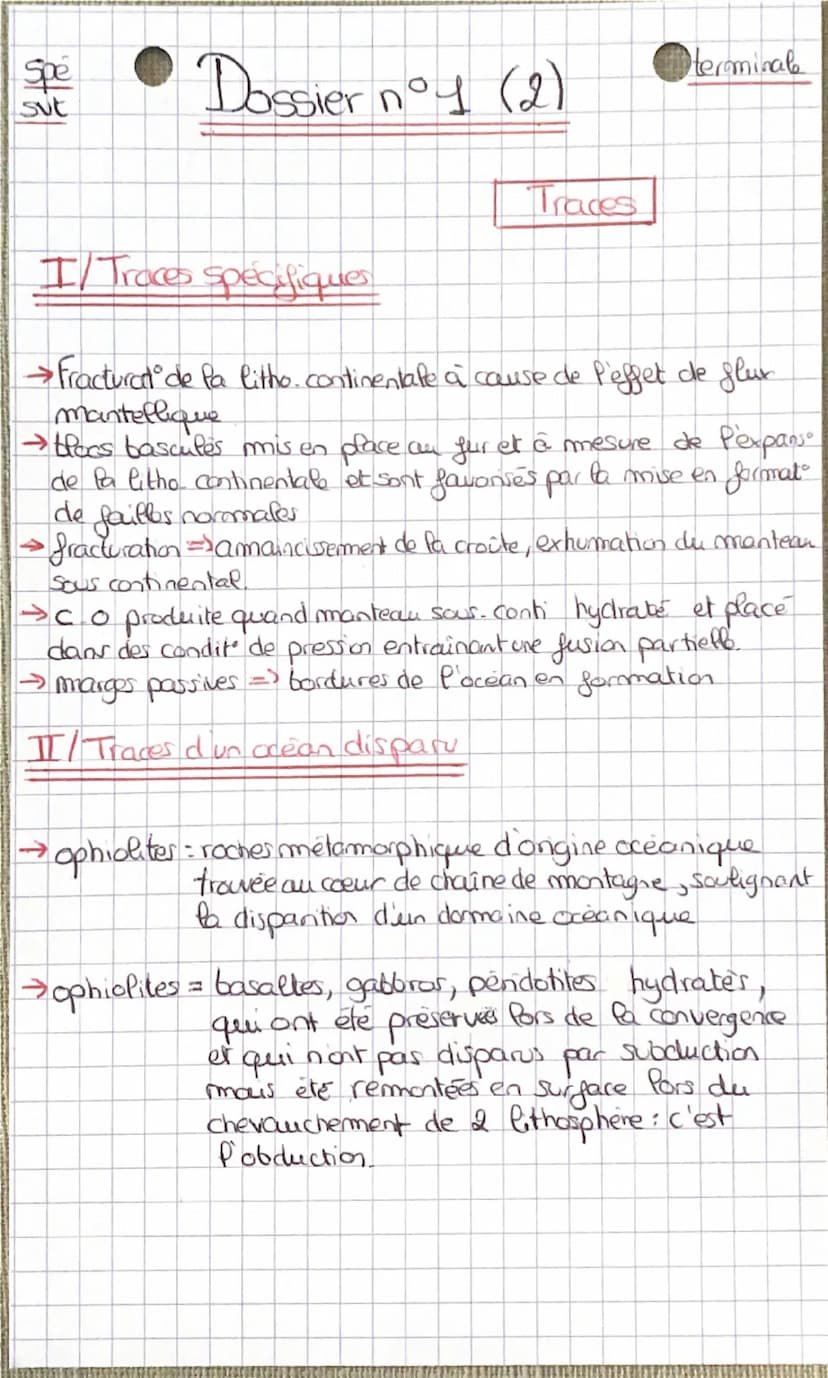 Spé
SVT
Dossier n°1 (2)
terminale
Traces
I/ Traces spécifiques
→ Fracturat° de la litho. continentale à cause de l'effet de flux
mantellique
→ blocs basculés mis en place au fur et à mesure de l'expans°
de la litho continentale et sont favorisés par la mise en format°
de failles normales
→ fracturation => amaincissement de la croûte, exhumation du manteau
sous continental.
→ C O produite quand manteau sous-conti hydraté et placé
dans des condit° de pression entraînant une fusion partielle.
→ marges passives => bordures de l'océan en formation
II/ Traces d'un océan disparu
→ ophiolites = roches métamorphique d'origine océanique
trouvée au cœur de chaîne de montagne, soulignant
la disparition d'un domaine océanique
→ ophiolites = basaltes, gabbros, péridotites hydratés,
qui ont été préservés lors de la convergence
et qui n'ont pas disparus par subduction
mais été remontées en surface lors du
chevauchement de 2 lithosphère : c'est
l'obduction.